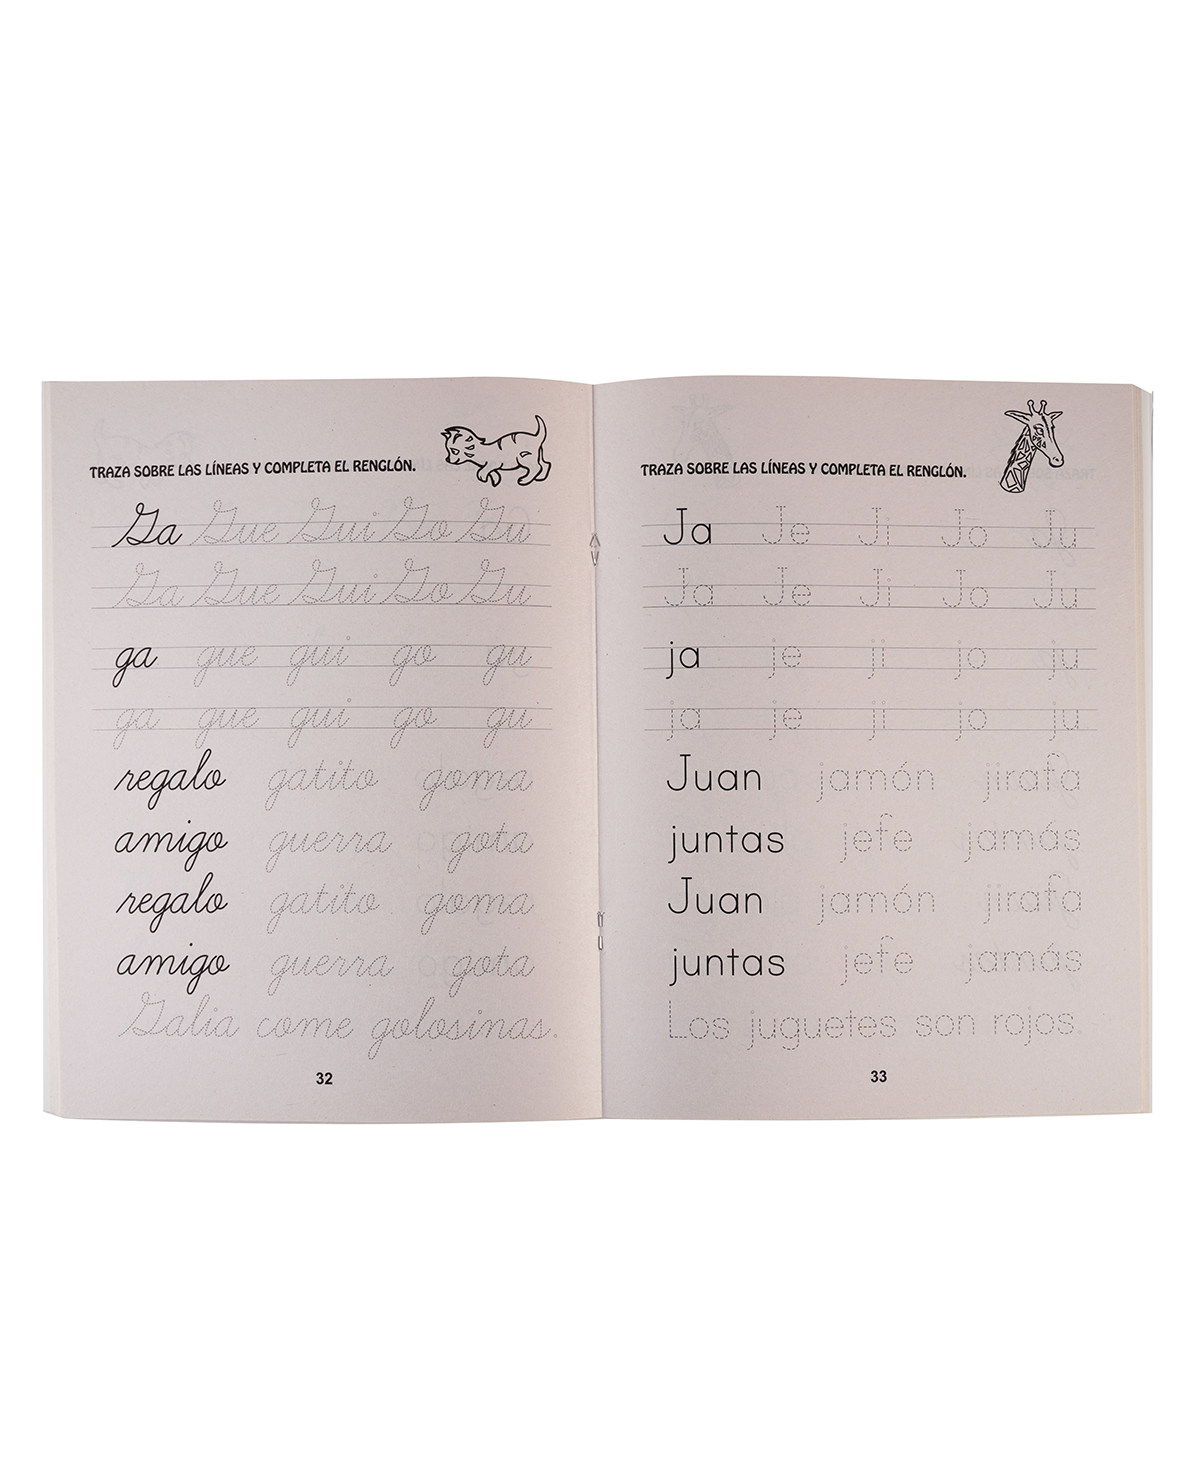 TRAZA SOBRE LAS LÍNEAS Y COMPLETA EL RENGLÓN.
Ga Gue Gui Go Gu
Ga Gue Gui Go Gu
ga gue gui go gu
ga gue gui go gu
regalo gatito goma
amigo guerra gota
regalo gatito goma
amigo guerra gota
Galia come golosinas.
32
TRAZA SOBRE LAS LÍNEAS Y COMPLETA EL RENGLÓN.
Ja Je Ji Jo Ju
Ja Je Ji Jo Ju
ja je ji jo ju
ja je ji jo ju
Juan jamón jirafa
juntas jefe jamás
Juan jamón jirafa
juntas jefe jamás
Los juguetes son rojos.
33